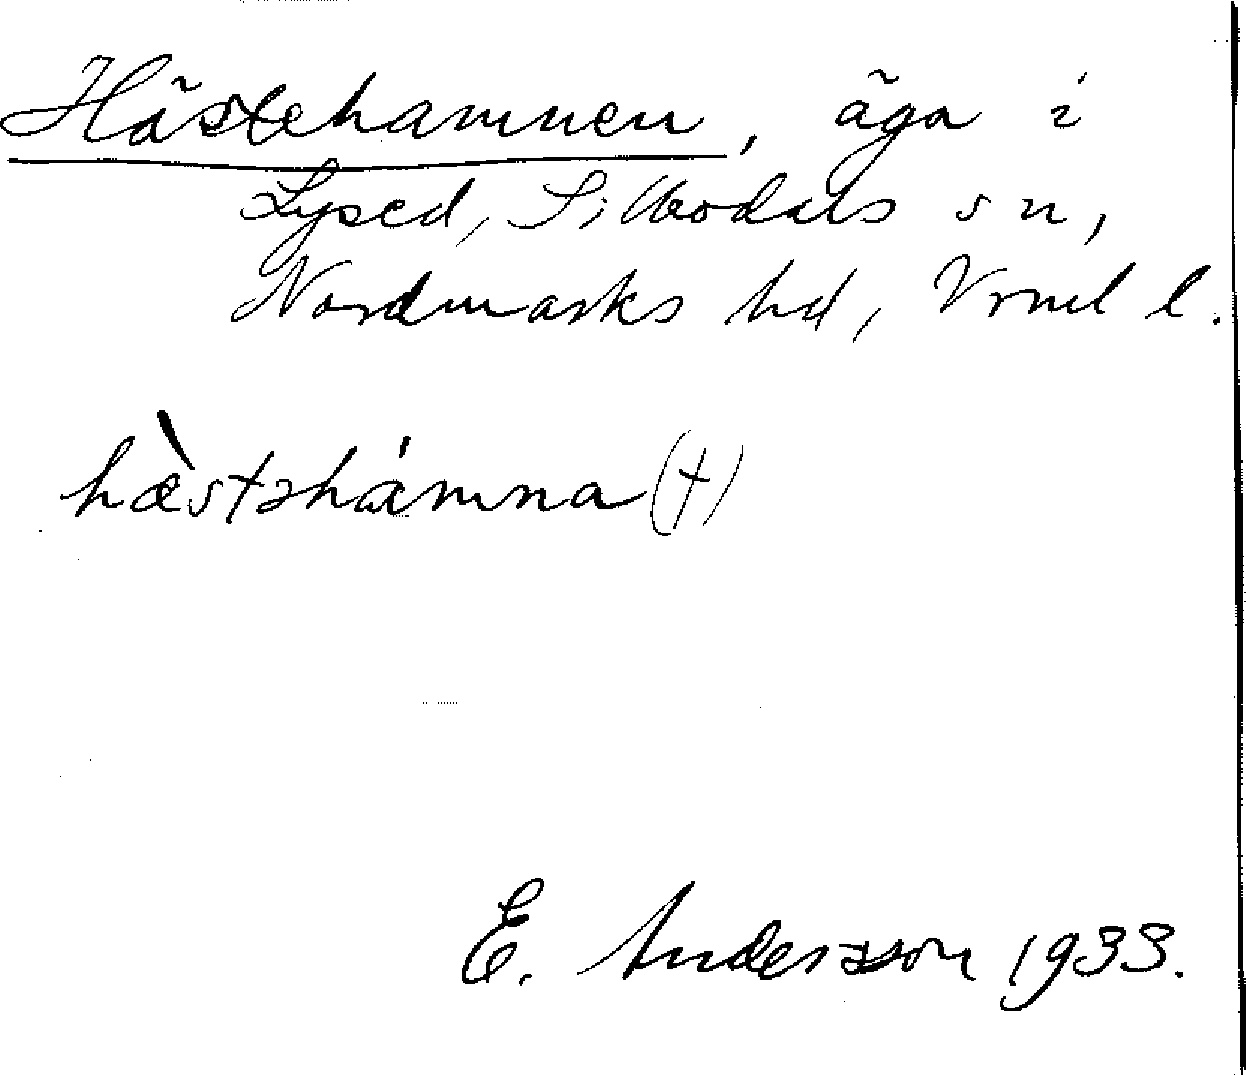 Hästehamnen, äga i
Lysed, Sillbodals sn,
Nordmarks hd, Vrml l.
hæ̀stəhámna (†)
E. Andersson 1933.